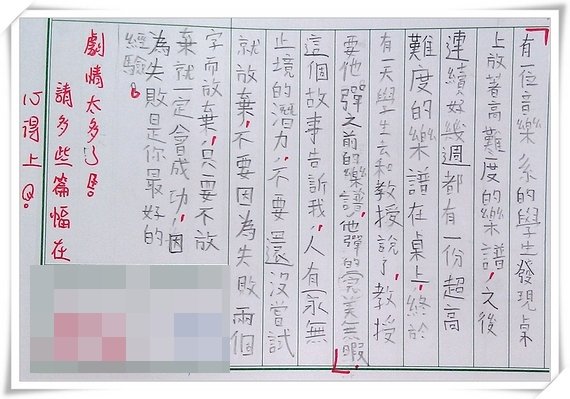 有一位音樂系的學生發現桌
上放著高難度的樂譜,之後
連續好幾週都有一份超高
難度的樂譜在桌上,終於
有一天學生去和教授說了,教授
要他彈之前的樂譜,他彈的完美無暇.
這個故事告訴我,人有永無
止境的潛力,不要還沒嘗試
就放棄,不要因為失敗兩個
字而放棄,只要不放
棄就一定會成功,因
為失敗是你最好的
經驗。
劇情太多了!
請多些篇幅在
心得上。